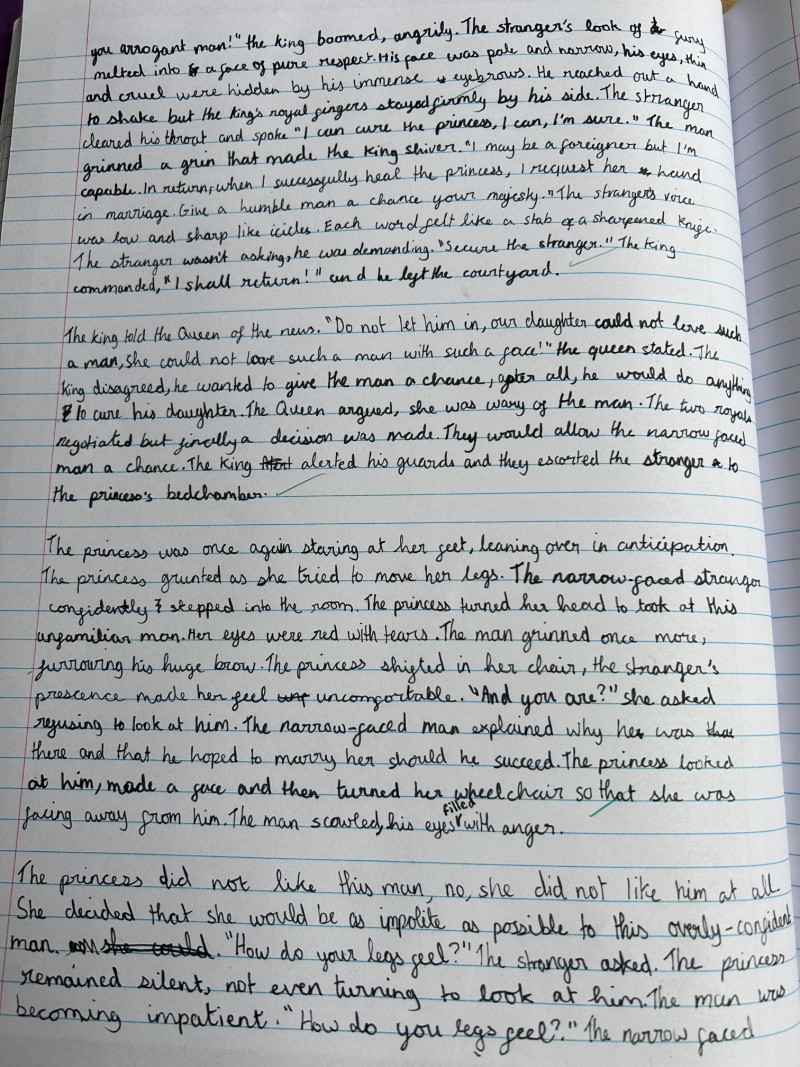 you arrogant man!" the king boomed, angrily. The stranger's look of fury
melted into a face of pure respect. His face was pale and narrow, his eyes, thin
and cruel were hidden by his immense eyebrows. He reached out a hand
to shake but the king's royal fingers stayed firmly by his side. The stranger
cleared his throat and spoke "I can cure the princess, I can, I'm sure." The man
grinned a grin that made the King shiver. "I may be a foreigner but I'm
capable. In return, when I successfully heal the princess, I request her hand
in marriage. Give a humble man a chance your majesty." The stranger's voice
was low and sharp like icicles. Each word felt like a stab of a sharpened knife.
The stranger wasn't asking, he was demanding. "Secure the stranger." The King
commanded, "I shall return!" and he left the courtyard.
The king told the Queen of the news. "Do not let him in, our daughter could not love such
a man, She could not love such a man with such a face!" the queen stated. The
King disagreed, he wanted to give the man a chance, after all, he would do anything
to cure his daughter. The Queen argued, she was wary of the man. The two royals
negotiated but finally a decision was made. They would allow the narrow faced
man a chance. The King alerted his guards and they escorted the stranger to
the princess's bedchamber.
The princess was once again staring at her feet, leaning over in anticipation.
The princess grunted as she tried to move her legs. The narrow-faced stranger
confidently stepped into the room. The princess turned her head to look at this
unfamiliar man. Her eyes were red with tears. The man grinned once more,
furrowing his huge brow. The princess shifted in her chair, the stranger's
prescence made her feel uncomfortable. "And you are?" she asked
refusing to look at him. The narrow-faced man explained why he was
there and that he hoped to marry her should he succeed. The princess looked
at him, made a face and then turned her wheelchair so that she was
facing away from him. The man scowled, his eyes filled with anger.
The princess did not like this man, no, she did not like him at all.
She decided that she would be as impolite as possible to this overly-confident
man. "How do your legs feel?" The stranger asked. The princess
remained silent, not even turning to look at him. The man was
becoming impatient. "How do you legs feel?" The narrow faced